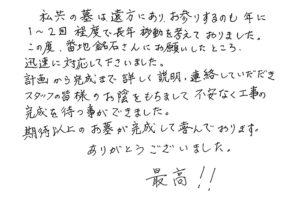 私共の墓は遠方にあり、お参りするのも年に
1〜2回程度で長年移動を考えておりました。
この度、菅地銘石さんにお願いしたところ、
迅速に対応して下さいました。
計画から完成まで詳しく説明、連絡していただき
スタッフの皆様のお陰をもちまして不安なく工事の
完成を待つ事ができました。
期待以上のお墓が完成して喜んでおります。
ありがとうございました。
最高!!